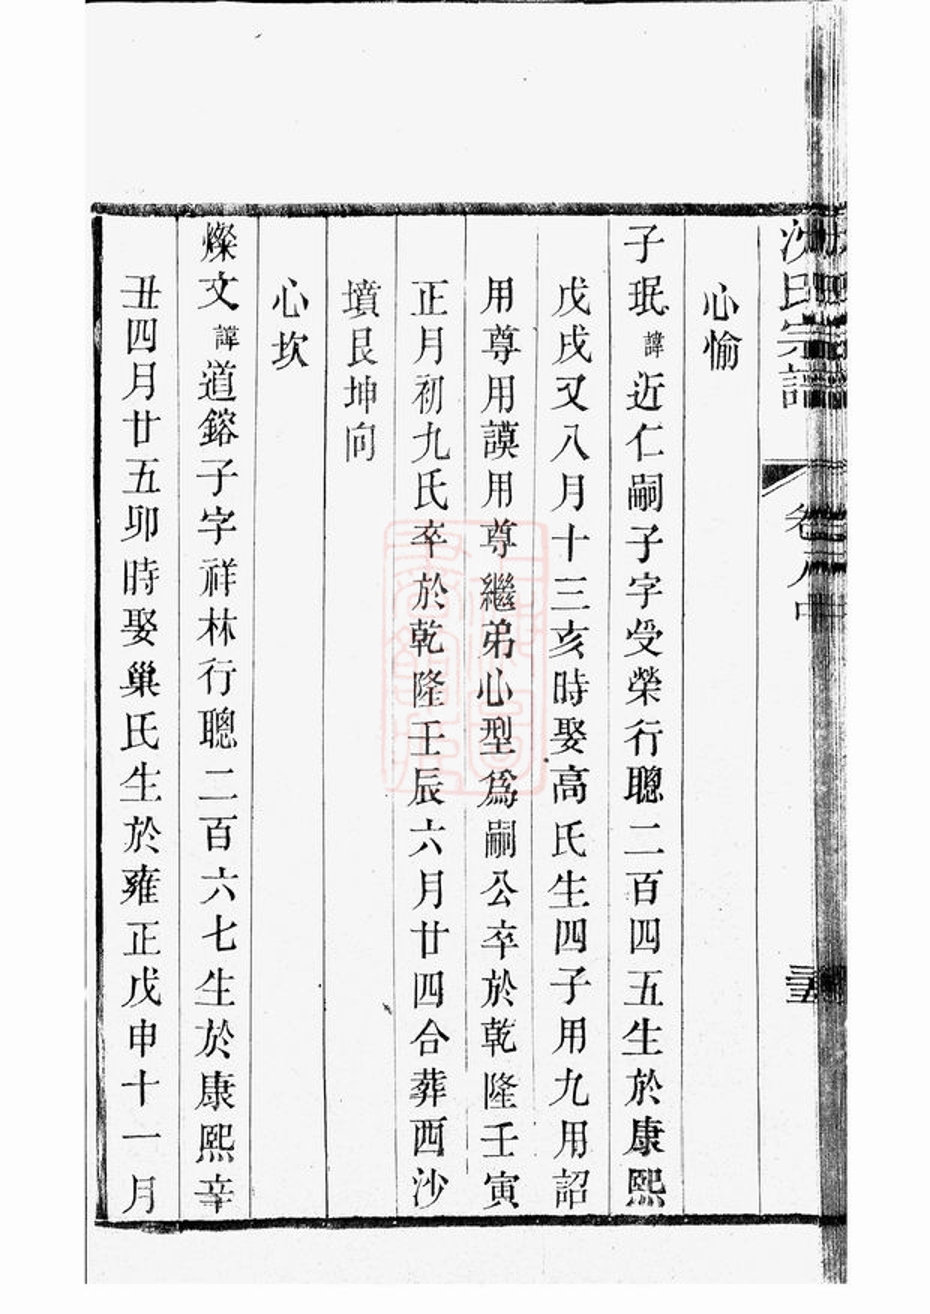 沈氏宗譜
卷八中
心愉
子珉諱近仁嗣子字受榮行聰二百四五生於康熙
戊戌又八月十三亥時娶高氏生四子用九用詔
用尊用謨用尊繼弟心型爲嗣公卒於乾隆壬寅
正月初九氏卒於乾隆壬辰六月廿四合葬西沙
墳艮坤向
心坎
燦文諱道鎔子字祥林行聰二百六七生於康熙辛
丑四月廿五卯時娶巢氏生於雍正戊申十一月